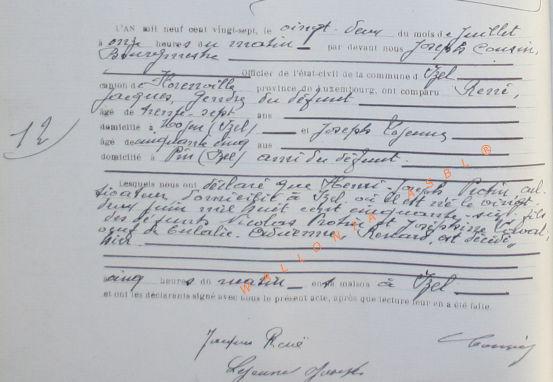 L'AN mil neuf cent vingt-sept, le vingt-deux du mois de Juillet
à onze heures du matin par devant nous Joseph Cousin,
Bourgmestre
Officier de l'état-civil de la commune d' Izel
canton de Florenville province de Luxembourg, ont comparu René,
Jacques, gendre du défunt
âgé de trente-sept ans
domicilié à (Izel) et Joseph Lejeune
âgé de cinquante cinq ans
domicilié à Pin (Izel) ami du défunt.
12
Lesquels nous ont déclaré que Henri-Joseph Protin, cul-
tivateur, domicilié à Izel, où il est né le vingt-
deux juin mil huit cent cinquante-six, fils
des défunts Nicolas Protin et Joséphine
veuf de Eulalie Renard, est décédé,
hier
cinq heures du matin en sa maison à Izel
et ont les déclarants signé avec nous le présent acte, après que lecture leur en a été faite.
Jacques René
Lejeune Joseph
Cousin
WALLONIA ASBL ®